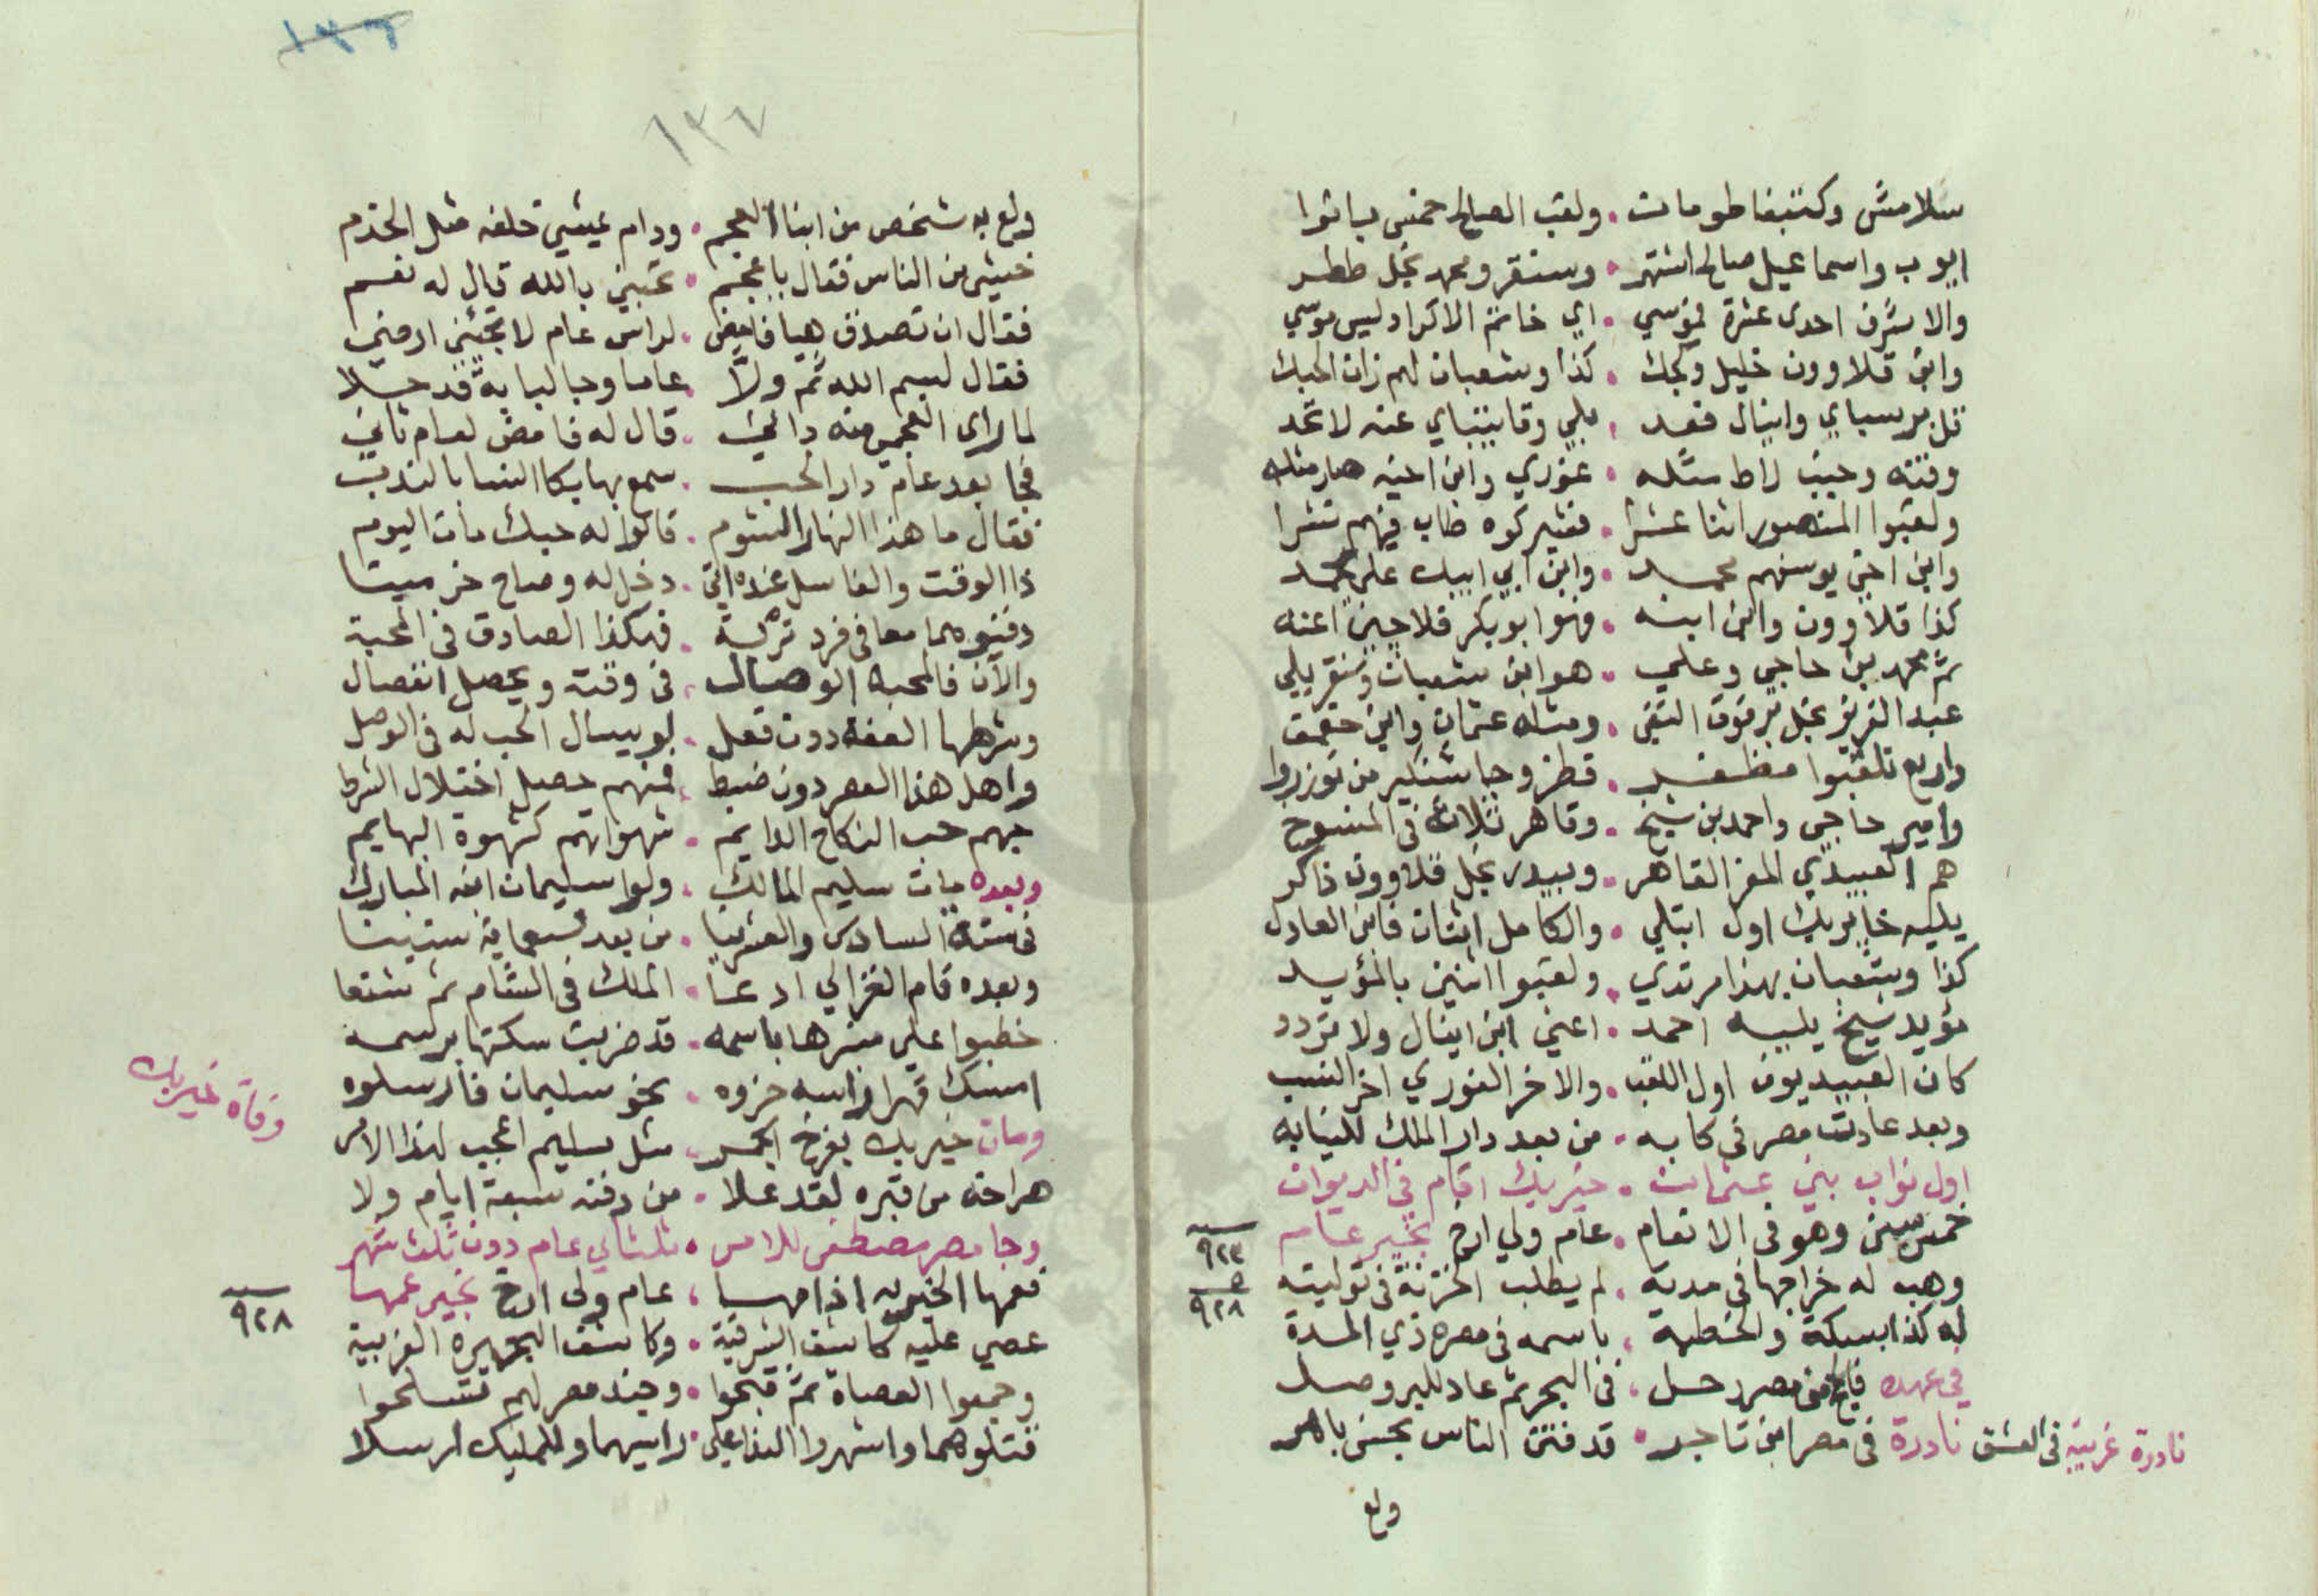 سلامش وكتبغا طومانت . ولقب الصالح خمس باتوا
ايوب واسماعيل صالح اشتهر . وسنقر ومحمد نجل ططر
والاشرف احدى عشرة لموسي . اي خاتم الاكراد ليس موسي
وابن قلاوون خليل وكجك . كذا وشعبان لهم
قل برسباي واينال فعد . بلي وقايتباي عنه لا تحد
غوري وابن اخيه صار مثله
ولقبوا المنصور اثنا عشرا
وابن اخي يوسفهم محمد . وابن ابي ايبك علي
كذا قلاوون وابن ابنه . فهوا ابو بكر فلاجين اعنه
ثم محمد بن حاجي وعلي . هو ابن شعبان
عبد العزيز نجل برقوق التقي . ومثله عثمان وابن جقمق
واربع تلقبوا مظفر . قطز وجاشنكير من
وامير حاجي واحمد بن شيخ . وقاهر ثلاثة في
هم العبيدي المعز القاهر . وبيدر نجل قلاوون ذاكر
يليه خايربك اول ابتلي . والكامل اثنان فابن العادل
كذا وشعبان بهذا مرتدي . ولقبوا اثنين بالمؤيد
مؤيد شيخ يليه احمد . اعني ابن اينال ولا تردد
كان العبيديون اول اللقب . والاخر الغوري اخر النسب
وبعد عادت مصر في كابه . من بعد دار الملك للنيابه
اول نواب بني عثمانت . خيربك اقام في الديوان
خمس سنين وهو في الانعام . عام ولي ارخ بخير عام
٩٢٣
وهب له خراجها في مدته . لم يطلب الخزنة في توليته
٩٢٨
له كذا بسكة والخطبة . باسمه في مصره ذي المدة
في عهده من مصر رحل . في البحر ثم عاد للبر وصل
نادرة غريبة في العشق
نادرة في مصر ابن تاجر . قد فتن الناس بحسن باهر
ولع
١٣٦
١٣٧
ولع به شخص من ابناء العجم . ودام يمشي خلفه مثل الخدم
خشي من الناس فقال يا عجم . تحبني بالله قال له نعم
فقال ان تصدق هيا فامض . لراس عام لا تجئني ارضي
فقال بسم الله ثم ولا . عاما وجا لبابه قد حلا
لما راى العجمي منه داني . قال له فامض لعام ثاني
فجا بعد عام دار الحب . سمع بها بكا النسا بالندب
فقال ما هذا النهار الشوم . قالوا له حبك مات اليوم
ذا الوقت والغاسل عنده اتي . دخل له وصاح خر ميتا
دفنوهما معا في فرد تربة . فهكذا الصادق في المحبة
والآن فالمحبه الوصال . في وقته ويحصل انفصال
وشرطها العفة دون فعل . لو يسال الحب له في الوصل
واهل هذا العصر دون ضبط . فمنهم حصل اختلال الشرط
حبهم حب النكاح الدايم . شهواتهم كشهوة البهايم
وبعده مات سليم المالك . ولوا سليمان ابنه المبارك
في سنة السادس والعشرينا . من بعد تسعماية سنينا
وبعده قام الغزالي ادعا . الملك في الشام ثم شنعا
خطبوا علي منبرها باسمه . قد ضربت سكتها برسمه
امسك قهرا راسه حزوه . نحو سليمان فارسلوه
وفاة خيربك
ومات خيربك بفرخ الجمر . مثل سليم اعجب لهذا الامر
صراخه من قبره لقد علا . من دفنه سبعة ايام ولا
وجا مصر مصطفى للامر . لثاني عام دون ثلث شهر
فعمها الخير به اذ امها . عام ولي ارخ بخير عمها
٩٢٨
عصي عليه كاشف الشرقية . وكاشف البحيرة الغربية
وجمعوا العصاة ثم قبحوا . وجند مصر لهم تسلحوا
فقتلوهما واشهروا الندا علي . راسيهما وللمليك ارسلا